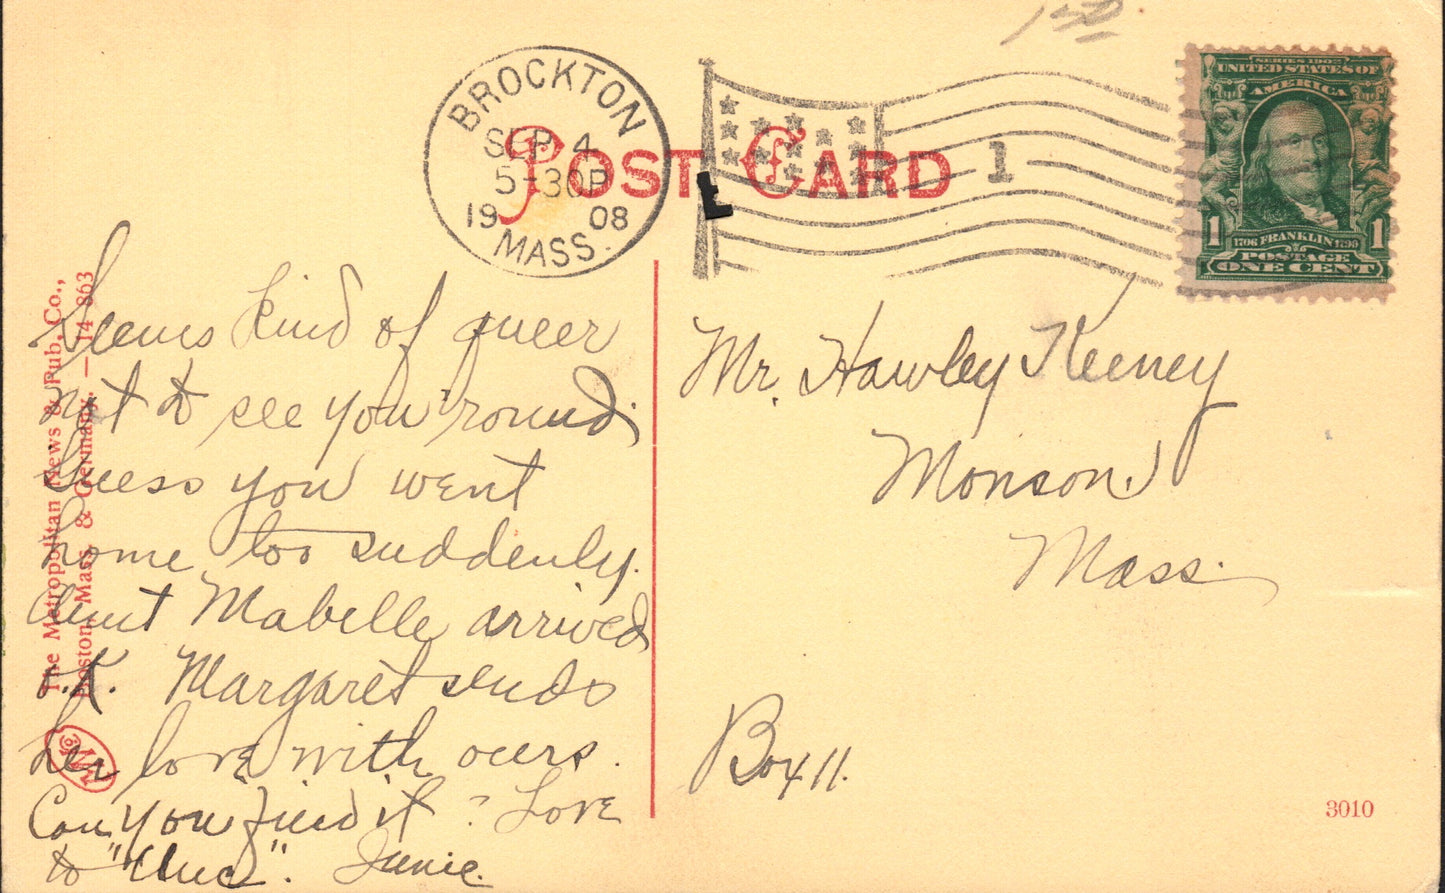 BROCKTON
SEP 4
5-30P
1908
MASS.
POST CARD
1
SERIES 1902
UNITED STATES OF
AMERICA
1 1706 FRANKLIN 1790 1
POSTAGE
ONE CENT
Seems kind of queer
not to see you 'round.
Guess you went
home too suddenly.
Aunt Mabelle arrived
o.K. Margaret sends
her love with ours.
Can you find it? Love
to
Mr. Hawley Keeney
Monson.
Mass.
Box 11.
The Metropolitan News & Pub. Co.,
Boston, Mass. & Germany. — 14 863
3010